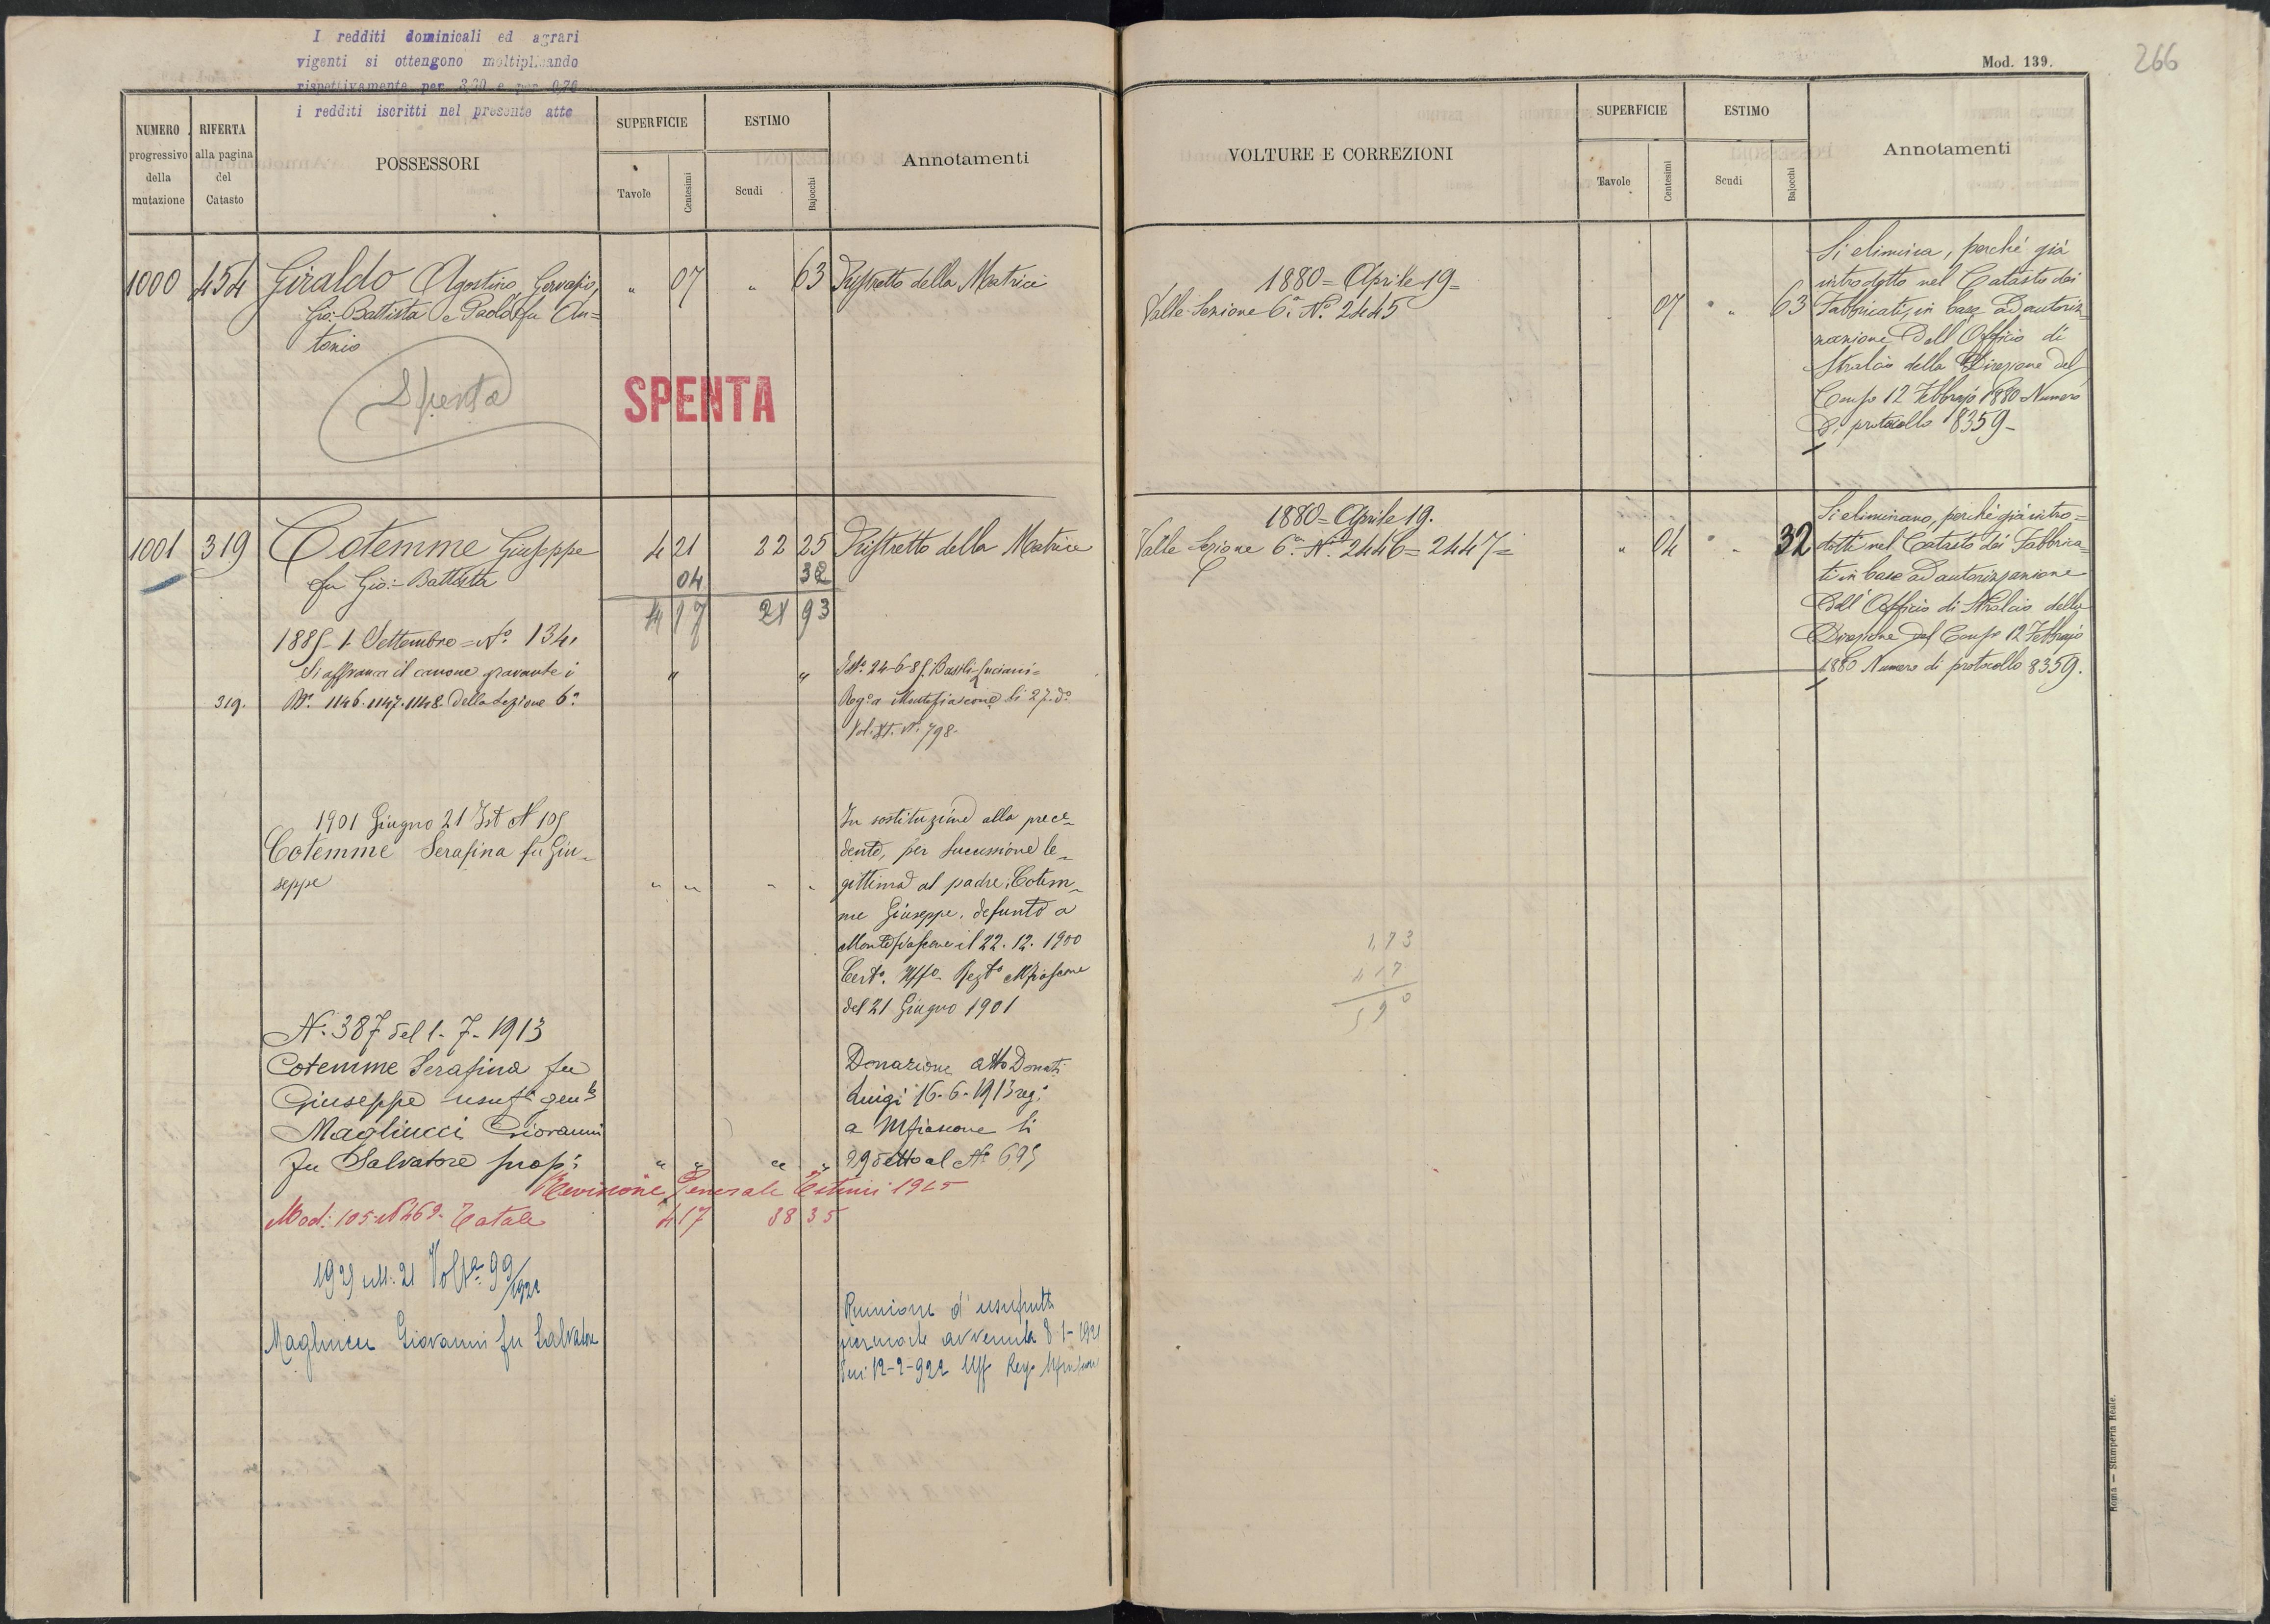 I redditi dominicali ed agrari
vigenti si ottengono moltiplicando
rispettivamente per 3,60 e per 0,70
i redditi iscritti nel presente atto
NUMERO
progressivo
della
mutazione
RIFERTA
alla pagina
del
Catasto
POSSESSORI
SUPERFICIE
Tavole
Centesimi
ESTIMO
Scudi
Bajocchi
Annotamenti
1000 454 Giraldo Agostino, Gervasio, " 07 " 63 Ristretto della Matrice
Gio: Battista e Paolo fu An=
tonio
Spenta
SPENTA
1001 319 Cotemme Giuseppe 4 21 22 25 Ristretto della Matrice
fu Gio:- Battista 04 32
4 17 21 93
1885 - 1 Settembre = No. 134.
Si affranca il canone gravante i " "
319. Ni. 1146. 1147. 1148. della Sezione 6a
Isto. 24-6-85. Luciani=
Rega Montefiascone li 27. do
Vol. XI. N. 798.
1901 Giugno 21 Ist N 105
Cotemme Serafina fu Giu-
seppe " " " "
In sostituzione alla prece-
dente, per successione le-
gittima al padre Cotem-
me Giuseppe, defunto a
Montefiascone il 22. 12. 1900
Certo. Uffo Regto Mfiascone
del 21 Giugno 1901
N. 387 del 1-7-1913
Cotemme Serafina fu
Giuseppe usuf. gen.
Magliucci Giovanni
fu Salvatore prop: " " " "
Donazione atto Donati
Luigi 16-6-1913 reg:
a Mfiascone li
29 detto al No 695
Revisione Generale Estimi 1915
Mod: 105. N 469. Totale 4 17 38 35
Volta 99/1921
Magliucci Giovanni fu Salvatore
Riunione d'usufrutto
per morte avvenuta 8-1-1921
12-2-922 Uff Reg. Mfiascone
Mod. 139.
266
VOLTURE E CORREZIONI
SUPERFICIE
Tavole
Centesimi
ESTIMO
Scudi
Bajocchi
Annotamenti
1880 = Aprile 19 =
Valle Sezione 6a. No. 2445 07 " " 63
Si elimina, perché già
introdotto nel Catasto dei
Fabbricati, in base ad autoriz-
zazione dell'Officio di
Stralcio della Direzione del
Censo 12 Febbrajo 1880 Numero
di protocollo 8359 -
1880 = Aprile 19.
Valle Sezione 6a. Ni. 2446 = 2447 = " 04 " " 32
Si eliminano, perché già intro=
dotti nel Catasto dei Fabbrica=
ti in base ad autorizzazione
dell'Officio di Stralcio della
Direzione del Censo 12 Febbrajo
1880 Numero di protocollo 8359.
1,73
417
5 90
Roma — Stamperia Reale.